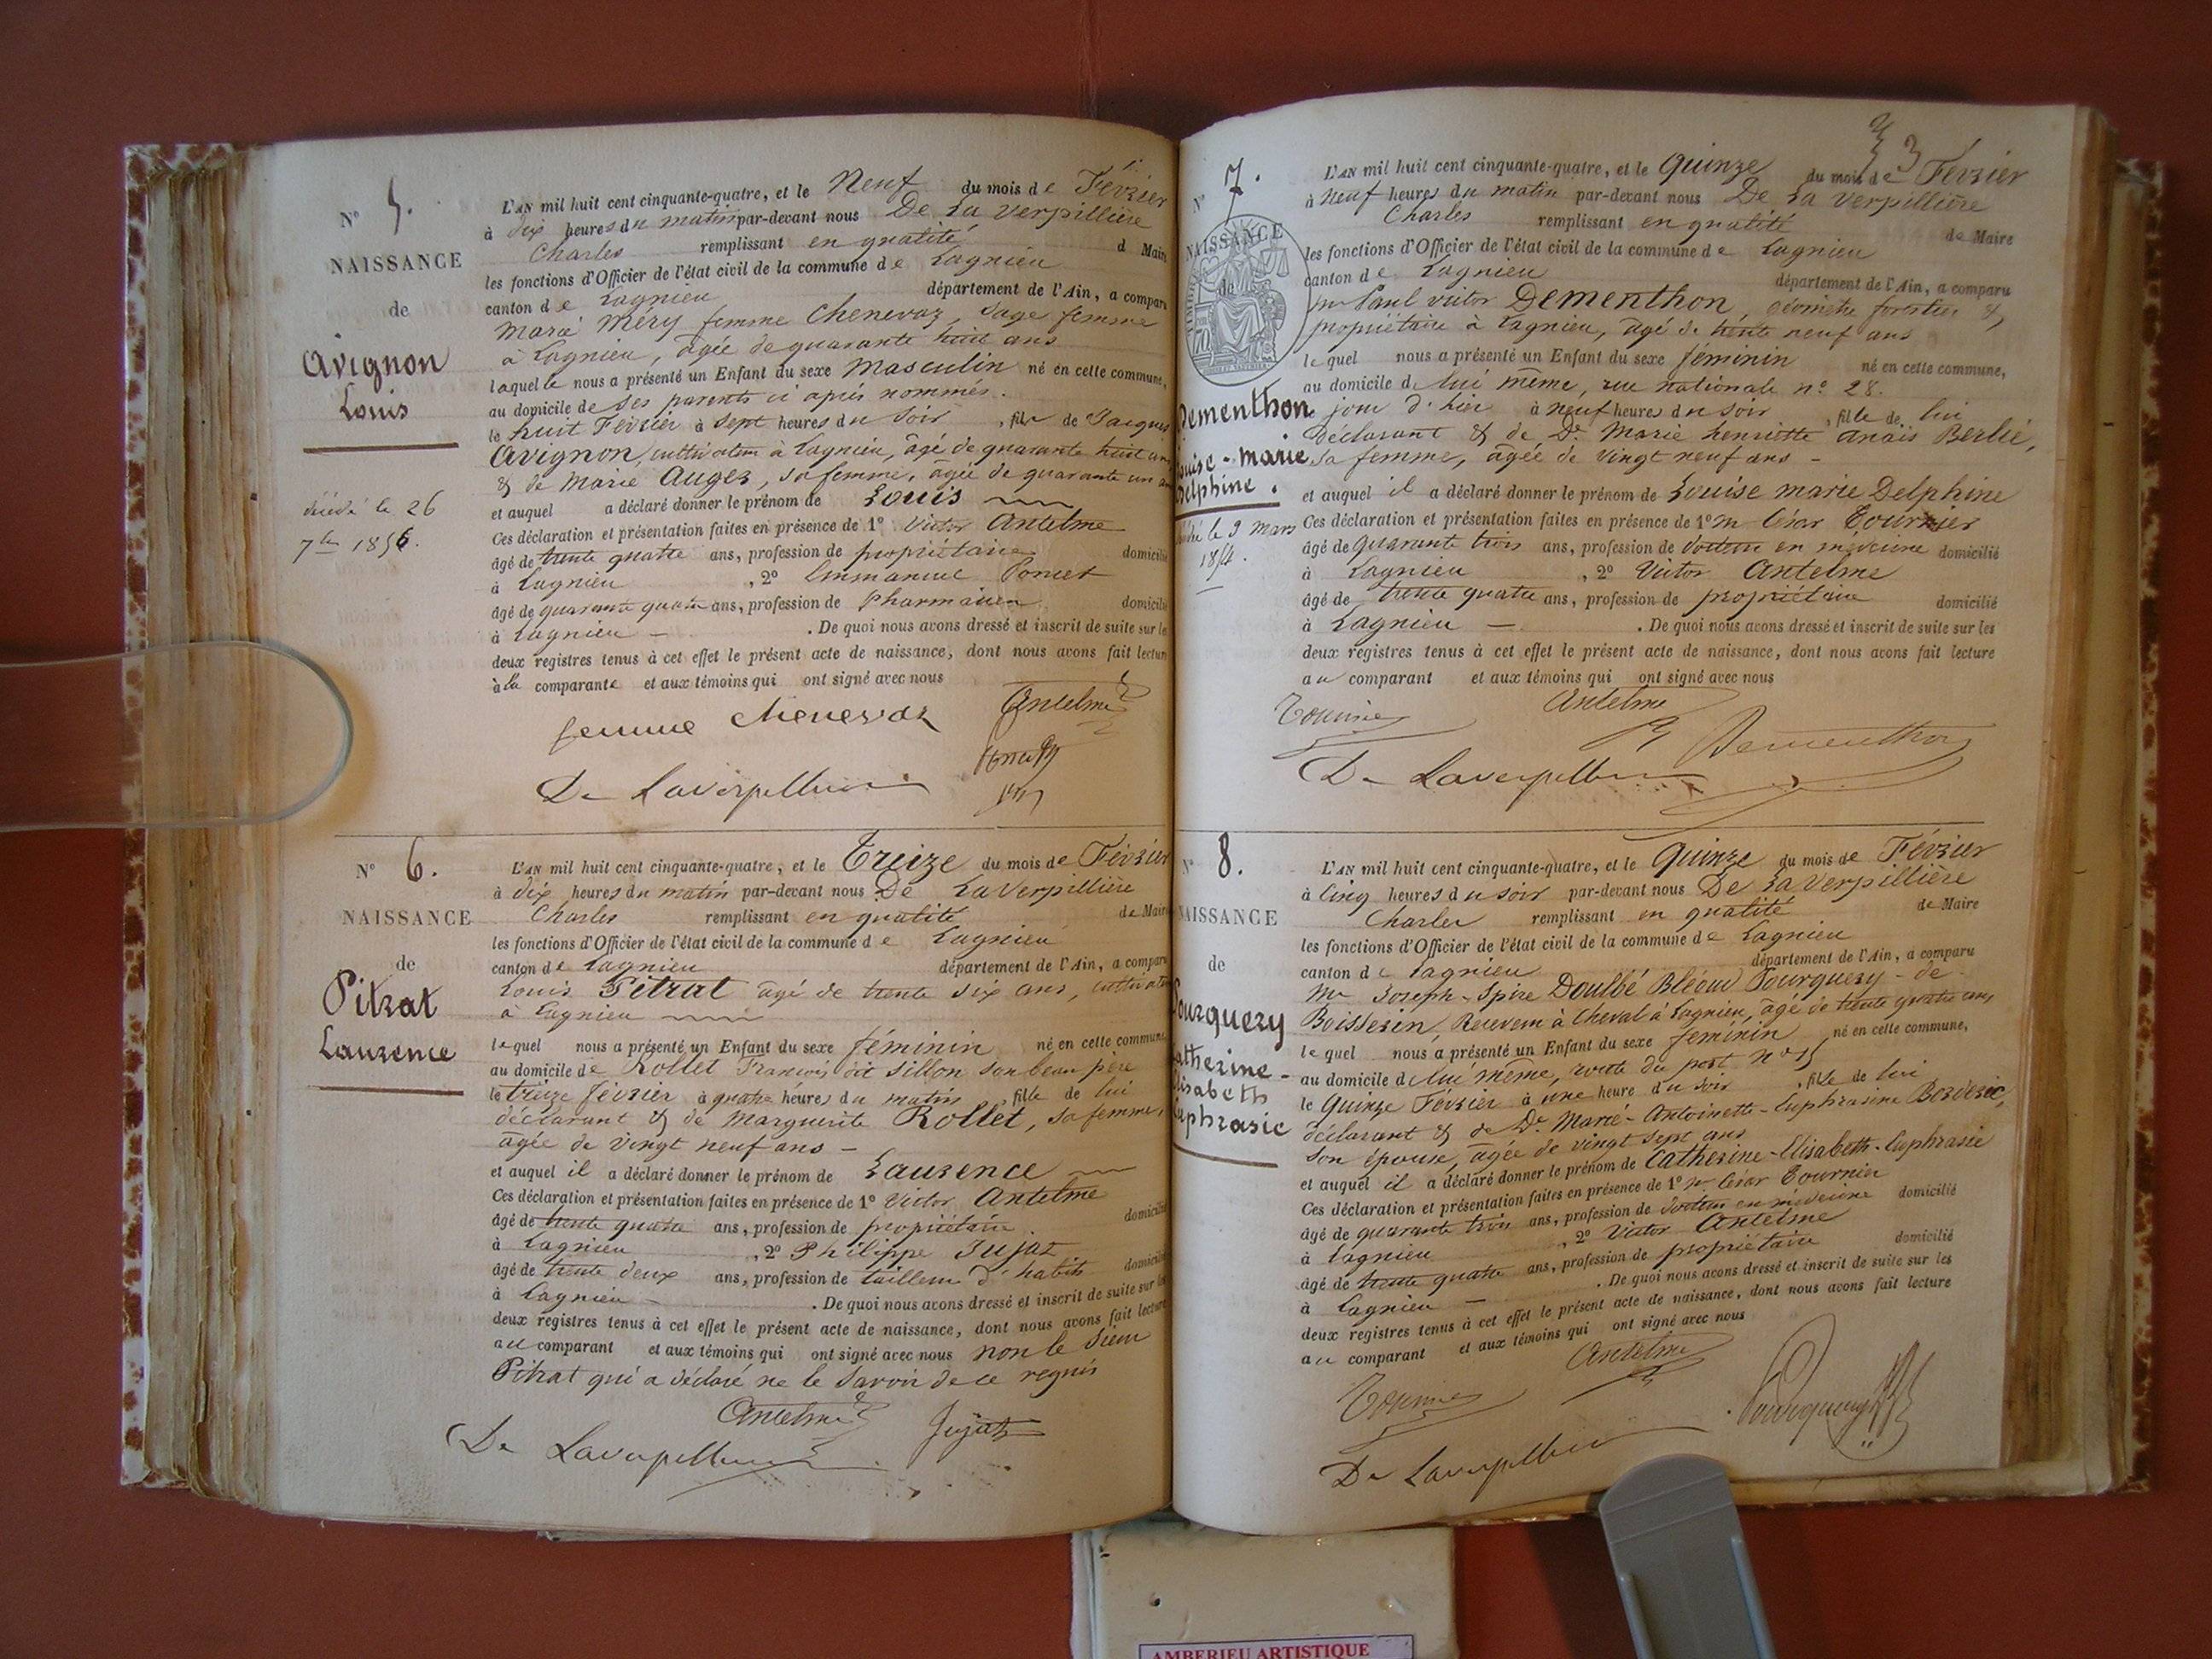 N° 5.
NAISSANCE
de
Avignon
Louis
décédé le 26
7bre 1856.
L'AN mil huit cent cinquante-quatre, et le Neuf du mois de Février
à dix heures du matin par-devant nous De La Verpillière
Charles remplissant en qualité d Maire
les fonctions d'Officier de l'état civil de la commune de Lagnieu
canton de Lagnieu département de l'Ain, a comparu
Marie Méry femme Chenevaz, Sage femme
à Lagnieu, âgée de quarante huit ans
laquelle nous a présenté un Enfant du sexe Masculin né en cette commune,
au domicile de ses parents ci après nommés.
le huit Février à sept heures du soir, fils de Jacques
Avignon, cultivateur à Lagnieu, âgé de quarante huit ans
& de Marie Auger, sa femme, âgée de quarante un ans
et auquel a déclaré donner le prénom de Louis
Ces déclaration et présentation faites en présence de 1° Victor Antelme
âgé de trente quatre ans, profession de propriétaire domicilié
à Lagnieu, 2° Emmanuel Poncet
âgé de quarante quatre ans, profession de Pharmacien domicilié
à Lagnieu – . De quoi nous avons dressé et inscrit de suite sur les
deux registres tenus à cet effet le présent acte de naissance, dont nous avons fait lecture
à la comparante et aux témoins qui ont signé avec nous
femme chenevaz Antelme
Poncet
De Laverpilliere
N° 6.
NAISSANCE
de
Pitrat
Laurence
L'AN mil huit cent cinquante-quatre, et le Treize du mois de Février
à dix heures du matin par-devant nous De La Verpillière
Charles remplissant en qualité de Maire
les fonctions d'Officier de l'état civil de la commune de Lagnieu
canton de Lagnieu département de l'Ain, a comparu
Louis Pitrat âgé de trente six ans, cultivateur
à Lagnieu
lequel nous a présenté un Enfant du sexe féminin né en cette commune,
au domicile de Rollet François dit Sillon son beau père
le treize février à quatre heures du matin, fille de lui
déclarant & de Marguerite Rollet, sa femme,
âgée de vingt neuf ans –
et auquel il a déclaré donner le prénom de Laurence
Ces déclaration et présentation faites en présence de 1° Victor Antelme
âgé de trente quatre ans, profession de propriétaire domicilié
à Lagnieu, 2° Philippe Jujat
âgé de trente deux ans, profession de tailleur d'habits domicilié
à Lagnieu – . De quoi nous avons dressé et inscrit de suite sur les
deux registres tenus à cet effet le présent acte de naissance, dont nous avons fait lecture
au comparant et aux témoins qui ont signé avec nous non le sieur
Pitrat qui a déclaré ne le savoir de ce requis
Antelme Jujat
De Laverpilliere
3
N° 7.
NAISSANCE
de
Dementhon
Louise-Marie
Delphine.
décédée le 9 mars
1854.
L'AN mil huit cent cinquante-quatre, et le Quinze du mois de Février
à neuf heures du matin par-devant nous De La Verpillière
Charles remplissant en qualité de Maire
les fonctions d'Officier de l'état civil de la commune de Lagnieu
canton de Lagnieu département de l'Ain, a comparu
mr Paul Victor Dementhon, géomètre forestier &
propriétaire à Lagnieu, âgé de trente neuf ans
lequel nous a présenté un Enfant du sexe féminin né en cette commune,
au domicile de lui même, rue nationale n° 28.
le jour d'hier à neuf heures du soir, fille de lui
déclarant & de De Marie henriette Anaïs Berlié,
sa femme, âgée de vingt neuf ans –
et auquel il a déclaré donner le prénom de Louise marie Delphine
Ces déclaration et présentation faites en présence de 1° mr César Tournier
âgé de quarante trois ans, profession de docteur en médecine domicilié
à Lagnieu, 2° Victor Antelme
âgé de trente quatre ans, profession de propriétaire domicilié
à Lagnieu – . De quoi nous avons dressé et inscrit de suite sur les
deux registres tenus à cet effet le présent acte de naissance, dont nous avons fait lecture
au comparant et aux témoins qui ont signé avec nous
Tournier Antelme Dementhon
De Laverpilliere
N° 8.
NAISSANCE
de
Fourquery
Catherine-
Elisabeth
Euphrasie
L'AN mil huit cent cinquante-quatre, et le Quinze du mois de Février
à Cinq heures du soir par-devant nous De La Verpillière
Charles remplissant en qualité de Maire
les fonctions d'Officier de l'état civil de la commune de Lagnieu
canton de Lagnieu département de l'Ain, a comparu
mr Joseph-Spire Doulbé Bléoud Fourquery-de-
Boisserin, Receveur à Cheval à Lagnieu, âgé de trente quatre ans
lequel nous a présenté un Enfant du sexe féminin né en cette commune,
au domicile de lui même, route du port n° 15
le Quinze Février à une heure du soir, fille de lui
déclarant & de De Marie-Antoinette-Euphrasine
son épouse, âgée de vingt sept ans
et auquel il a déclaré donner le prénom de Catherine-Elisabeth-Euphrasie
Ces déclaration et présentation faites en présence de 1° mr César Tournier
âgé de quarante trois ans, profession de docteur en médecine domicilié
à Lagnieu, 2° Victor Antelme
âgé de trente quatre ans, profession de propriétaire domicilié
à Lagnieu – . De quoi nous avons dressé et inscrit de suite sur les
deux registres tenus à cet effet le présent acte de naissance, dont nous avons fait lecture
au comparant et aux témoins qui ont signé avec nous
Tournier Antelme Fourquery
De Laverpilliere
AMBERIEU ARTISTIQUE